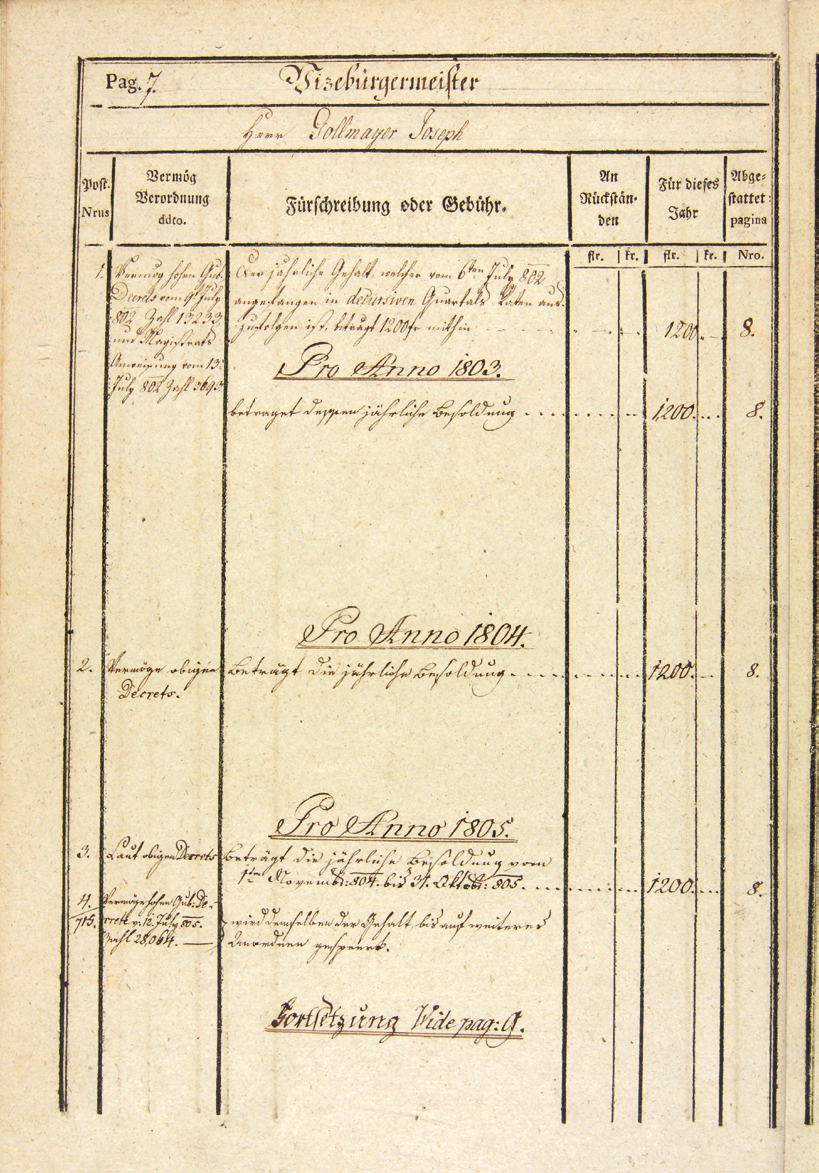 Pag. 7. Vizebürgermeister
Herr Gollmayer Joseph
Post. Nrus
Vermög
Verordnung
ddto.
Fürschreibung oder Gebühr.
An
Rückstän-
den
Für dieses
Jahr
Abge-
stattet:
pagina
flr. kr. flr. kr. Nro.
1. Vermög hohen Gub:
Decrets vom 9t July
802 Zahl 13233
und Magistrats
Anweisung vom 13
July 802 Zahl 3693
Der jährliche Gehalt, welcher vom 6ten July 802
angefangen in decursiven Quartals Raten aus-
zufolgen ist, beträgt 1200 fr mithin 1200. 8.
Pro Anno 1803.
betraget dessen jährliche Besoldung 1200. 8.
Pro Anno 1804.
2. Vermöge obigen
Decrets.
Beträgt die jährliche Besoldung 1200. 8.
Pro Anno 1805.
3. Laut obigen Decrets
Beträgt die jährliche Besoldung vom
1ten Novemb: 804. bis 31. Oktob: 805. 1200. 8.
4.
715.
Vermöge hohen Gub: De-
crett v: 12. July 805.
Zahl 28064.
wird demselben der Gehalt bis auf weiteres
Anordnen gesperrt.
Fortsetzung Vide pag: 9.